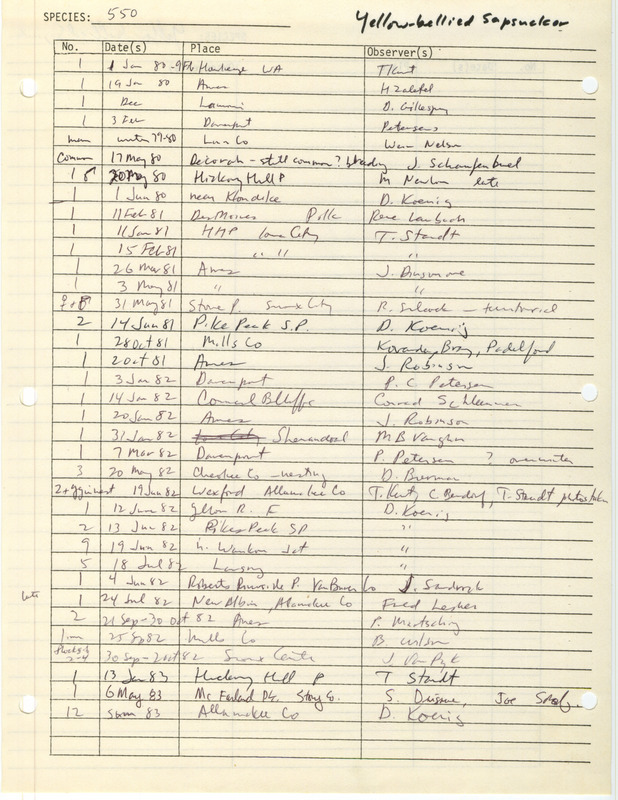 SPECIES: 550 Yellow-bellied Sapsucker
No. Date(s) Place Observer(s)
1 1 Jan 80 - 9 Feb Hawkeye WA T Kent
1 19 Jan 80 Ames H Zaletel
1 Dec Lamoni D. Gillespey
1 3 Feb Davenport Petersens
many winter 79-80 Linn Co Wein Nelson
Common 17 May 80 Decorah - still common? breeding J. Schaufenbuel
1 ♂ 20 May 80 Hickory Hill P M Newlon late
1 1 Jun 80 near Klondike D. Koenig
1 11 Feb 81 Des Moines Polk Rene Laubach
1 11 Jan 81 HHP Iowa City T. Staudt
1 15 Feb 81 " " "
1 26 Mar 81 Ames J. Dinsmore
1 3 May 81 " "
♀+♂ 31 May 81 Stone P. Sioux City R. Silcock - territorial
2 14 Jun 81 Pikes Peak S.P. D. Koenig
1 28 Oct 81 Mills Co Kovanda, Bray, Padelford
1 2 Oct 81 Ames J. Robinson
1 3 Jan 82 Davenport P. C. Petersen
1 14 Jan 82 Council Bluffs Conrad Schlemmer
1 20 Jan 82 Ames J. Robinson
1 31 Jan 82 Shenandoah M B Vaughn
1 7 Mar 82 Davenport P. Petersen ? overwinter
3 20 May 82 Cherokee Co - nesting D. Bierman
2 + yg in nest 19 Jun 82 Wexford Allamakee Co T. Kent, C Bendorf, T. Staudt photos taken
1 12 Jun 82 Yellow R. F D. Koenig
2 13 Jun 82 Pikes Peak SP "
9 19 Jun 82 n. Waukon Jct "
5 18 Jul 82 Lansing "
1 4 Jun 82 Roberts P. Van Buren Co J. Sandrock
late 1 24 Jul 82 New Albin, Allamakee Co Fred Lesher
2 21 Sep - 30 Oct 82 Ames P. Martsching
1 imm 25 Sep 82 Mills Co B. Wilson
2-4 30 Sep - 2 Oct 82 Sioux Center J. Van Dyk
1 13 Jan 83 Hickory Hill P T Staudt
1 6 May 83 McFarland Pk. Story Co. S. Dinsmore, Joe
12 summ 83 Allamakee Co D. Koenig